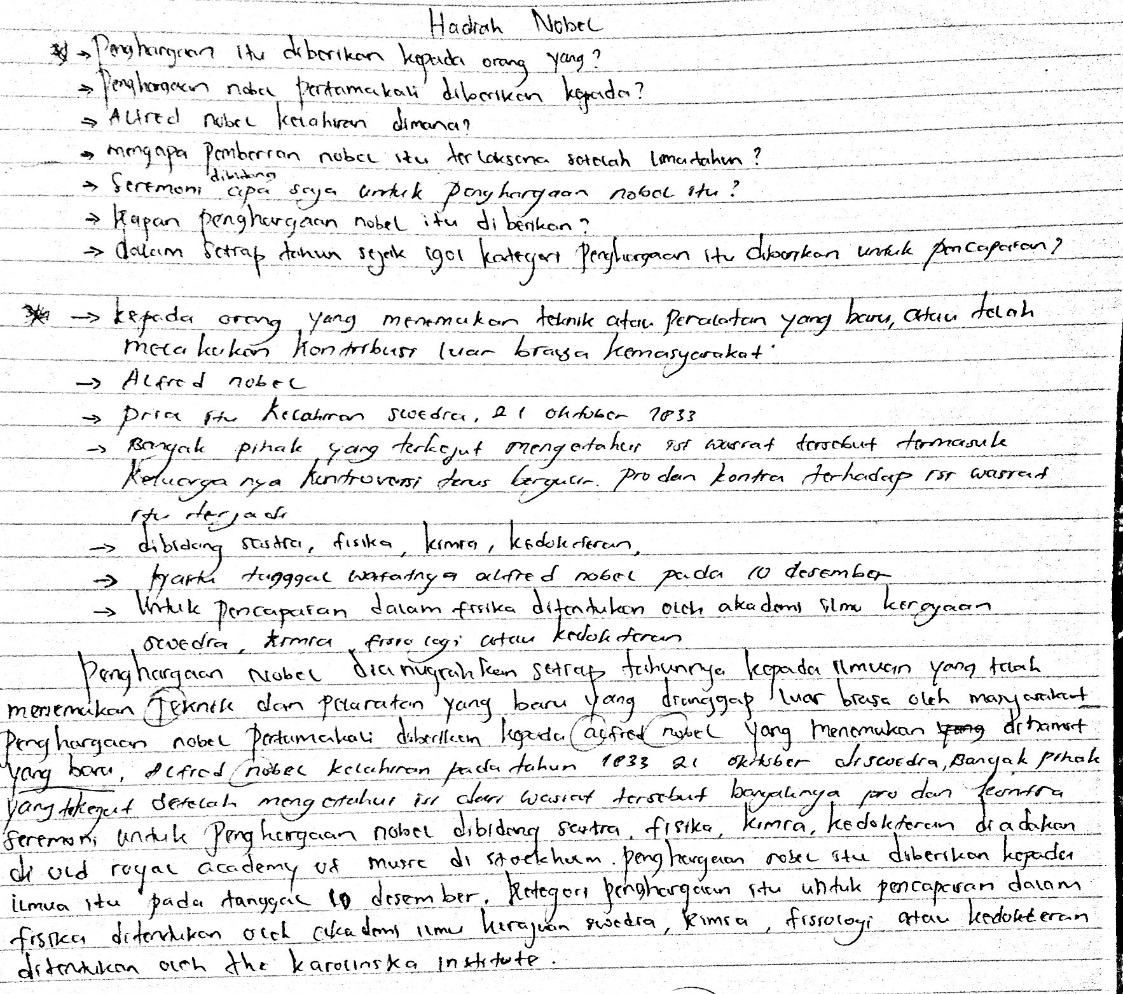 Hadiah Nobel
→ Penghargaan itu diberikan kepada orang yang?
→ Penghargaan nobel pertamakali diberikan kepada?
→ Alfred nobel kelahiran dimana?
→ mengapa Pemberian nobel itu terlaksana setelah limatahun?
dibidang
→ Seremoni apa saja untuk penghargaan nobel itu?
→ Kapan penghargaan nobel itu diberikan?
→ dalam setiap tahun sejak 1901 kategori Penghargaan itu diberikan untuk pencapaian?
→ kepada orang yang menemukan teknik atau Peralatan yang baru, atau telah
melakukan kontribusi luar biasa kemasyarakat.
→ Alfred nobel
→ pria itu kelahiran swedia, 21 oktober 1833
→ Banyak pihak yang terkejut mengetahui isi wasiat tersebut termasuk
Keluarga nya kontroversi terus bergulir. pro dan kontra terhadap isi wasiat
itu terjadi
→ dibidang sastra, fisika, kimia, kedokteran,
→ tanggal wafatnya alfred nobel pada 10 desember
→ Untuk pencapaian dalam fisika ditentukan oleh akademi ilmu kerajaan
swedia, kimia, fisiologi atau kedokteran
Penghargaan Nobel dianugrahkan setiap tahunnya kepada ilmuan yang telah
menemukan Teknik dan pelaratan yang baru yang dianggap luar biasa oleh masyarakat
Penghargaan nobel Pertamakali diberikan kepada alfred nobel yang menemukan yang dinamit
yang baru, Alfred nobel kelahiran pada tahun 1833 21 oktober diswedia, Banyak pihak
yang tekejut setelah mengetahui isi dari wasiat tersebut banyaknya pro dan kontra
seremoni untuk Penghargaan nobel dibidang sastra, fisika, kimia, kedokteran diadakan
di old royal academy of music di stockhum. penghargaan nobel itu diberikan kepada
ilmua itu pada tanggal 10 desember. Kategori penghargaan itu untuk pencapaian dalam
fisika ditentukan oleh akademi ilmu kerajaan swedia, kimia, fissiologi atau kedokteran
ditentukan oleh the karolinska institute.